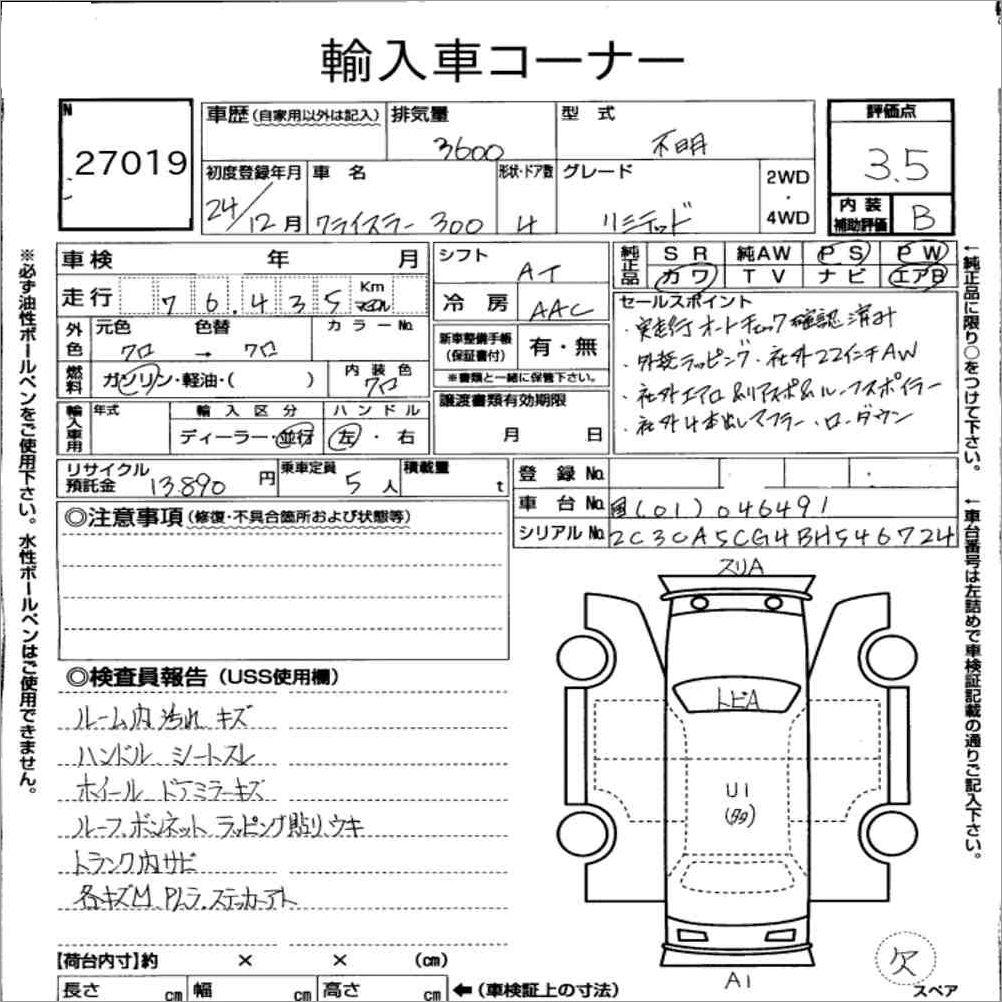 輸入車コーナー
N
27019
車歴 (自家用以外は記入)
排気量
3600
型式
不明
評価点
3.5
初度登録年月
24/12月
車名
クライスラー 300
形状・ドア数
4
グレード
リミテッド
2WD
・
4WD
内装
補助評価
B
車検 年 月
シフト
AT
純正品
SR 純AW PS PW
カワ TV ナビ エアB
走行 76,435 Km マイル
冷房
AAC
セールスポイント
・実走行オートチェック確認済み
・外装ラッピング・社外22インチAW
・社外エアロ&リアスポ&ルーフスポイラー
・社外4本出しマフラー・ローダウン
外色
元色 色替
クロ → クロ
カラーNo.
新車整備手帳
(保証書付)
有・無
※書類と一緒に保管下さい。
燃料
ガソリン・軽油・( )
内装色
クロ
譲渡書類有効期限
月 日
輸入車用
年式
輸入区分
ディーラー・並行
ハンドル
左・右
リサイクル
預託金
13890円
乗車定員
5人
積載量
t
登録No.
車台No.
国(01)046491
シリアルNo.
2C3CA5CG4BH546724
◎注意事項 (修復・不具合箇所および状態等)
◎検査員報告 (USS使用欄)
ルーム内汚れ キズ
ハンドル シートスレ
ホイール ドアミラーキズ
ルーフ.ボンネット ラッピング貼りウキ
トランク内サビ
各キズM Pノラステッカーアト
スリA
トビA
U1
(多々)
A1
欠
スペア
【荷台内寸】約 × × (cm)
長さ cm 幅 cm 高さ cm
←(車検証上の寸法)
※必ず油性ボールペンをご使用下さい。水性ボールペンはご使用できません。
←純正品に限り○をつけて下さい。
←車台番号は左詰めで車検証記載の通りご記入下さい。